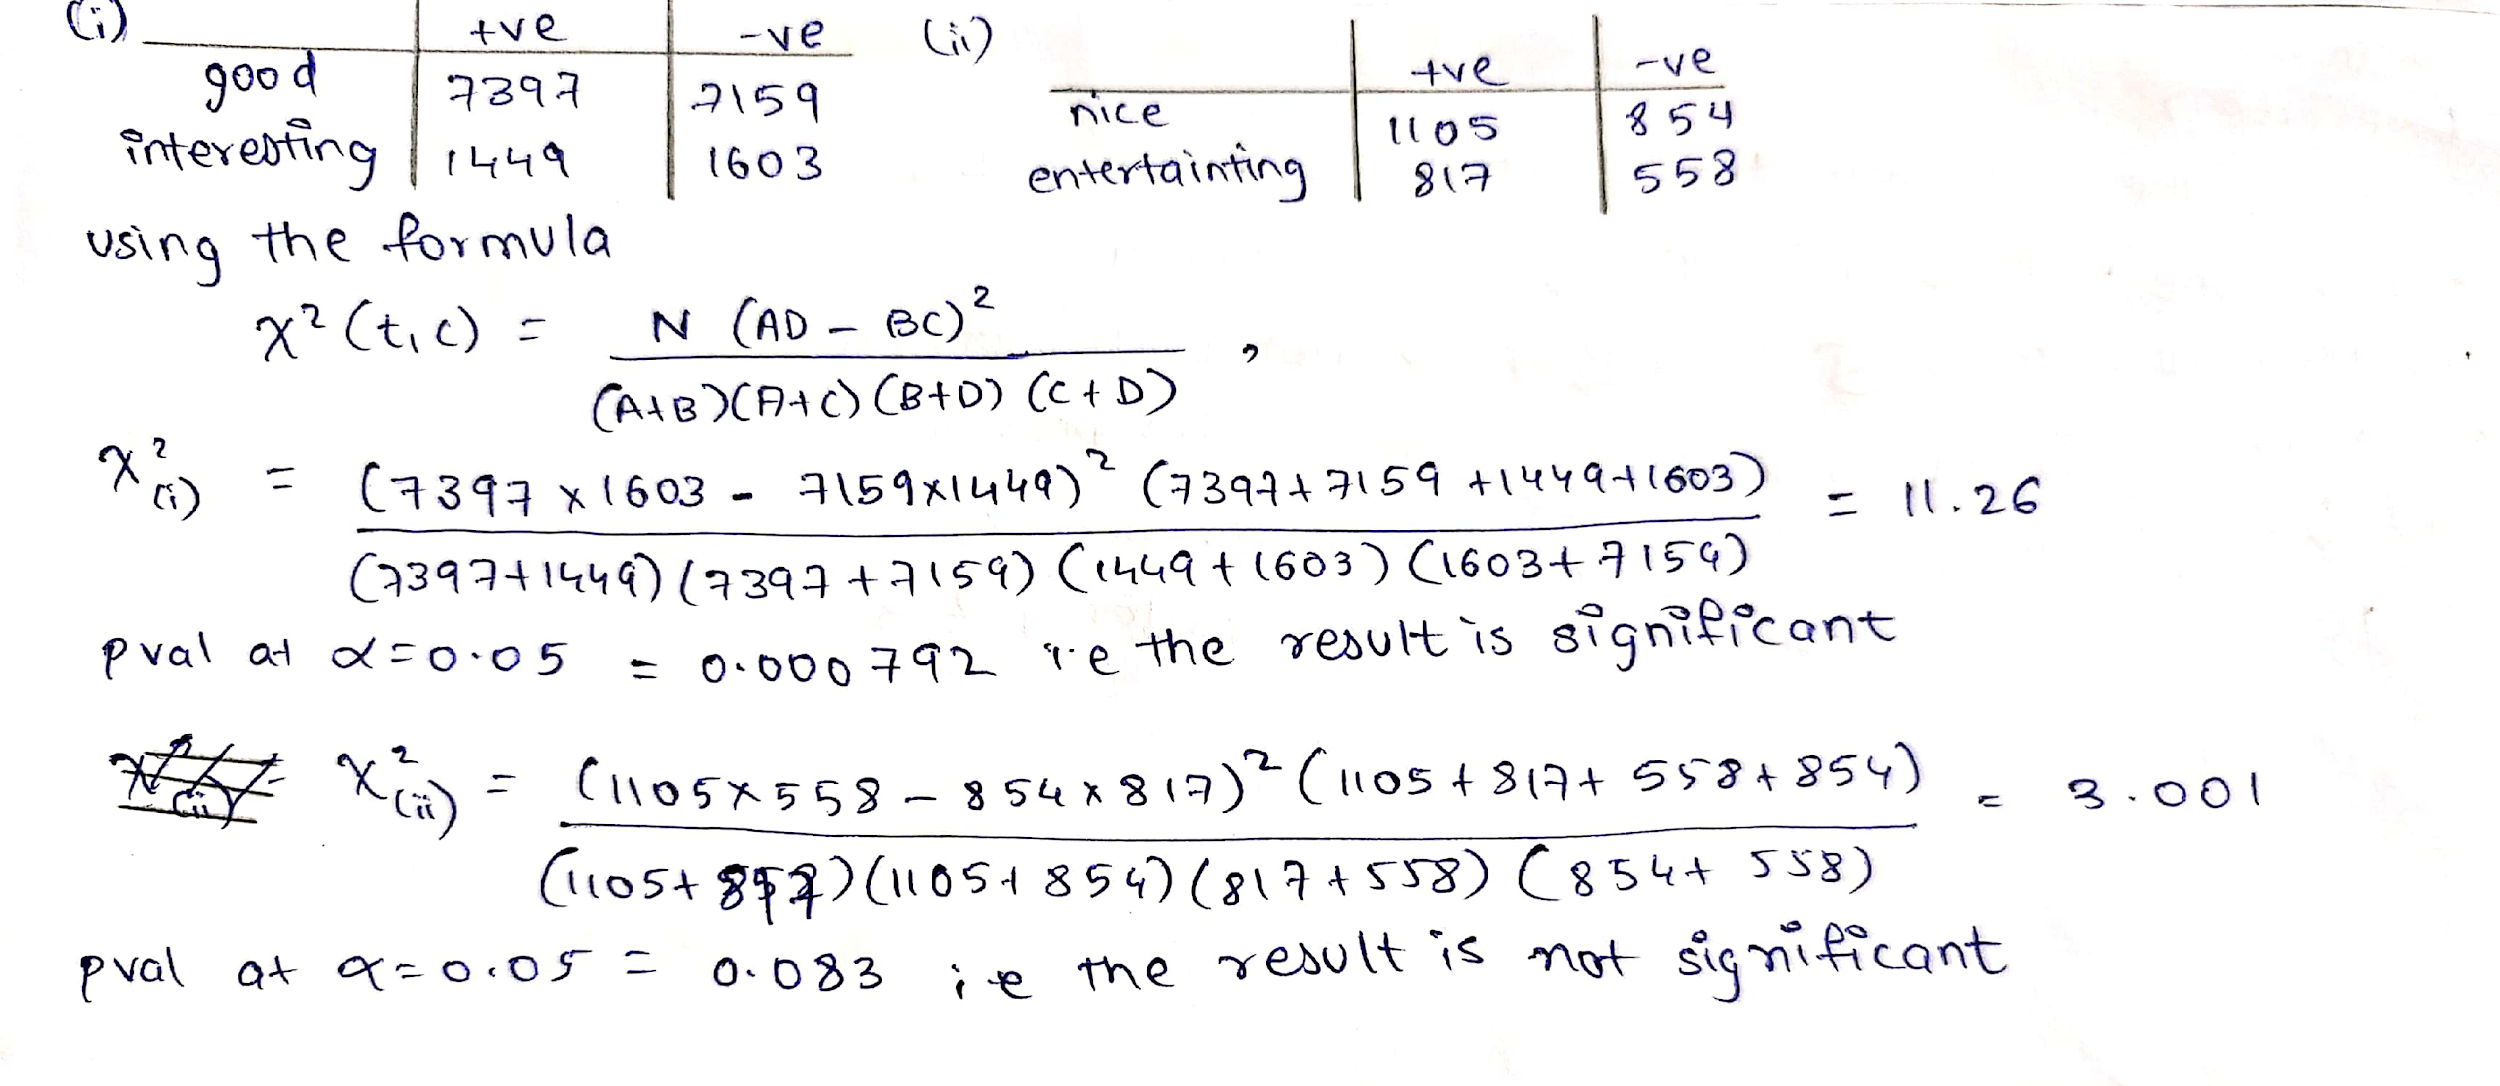 (i) +ve -ve
good 7397 7159
interesting 1449 1603
(ii) +ve -ve
nice 1105 854
entertainting 817 558
using the formula
χ² (t,c) = N (AD - BC)² / (A+B)(A+C)(B+D)(C+D) ,
χ²(i) = (7397 x 1603 - 7159x1449)² (7397+7159+1449+1603) / (7397+1449)(7397+7159)(1449+1603)(1603+7159) = 11.26
pval at α=0.05 = 0.000792 i.e the result is significant
χ²(ii) = (1105x558 - 854x817)² (1105+817+558+854) / (1105+817)(1105+854)(817+558)(854+558) = 3.001
pval at α=0.05 = 0.083 i.e the result is not significant